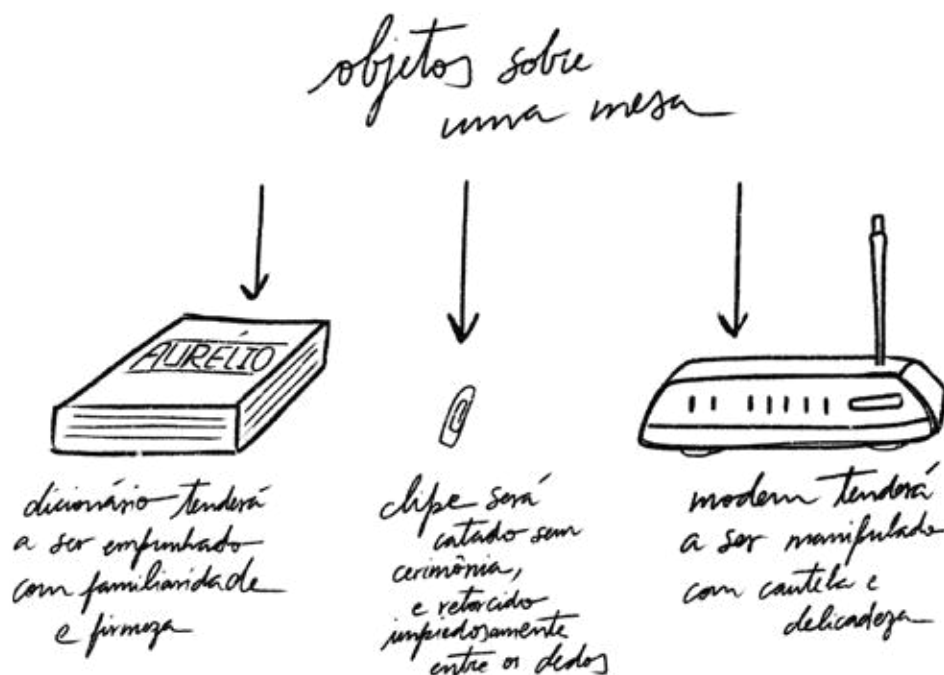 objetos sobre
uma mesa
AURÉLIO
dicionário tenderá
a ser empunhado
com familiaridade
e firmeza
clipe será
catado sem
cerimônia,
e retorcido
impiedosamente
entre os dedos
modem tenderá
a ser manipulado
com cautela e
delicadeza